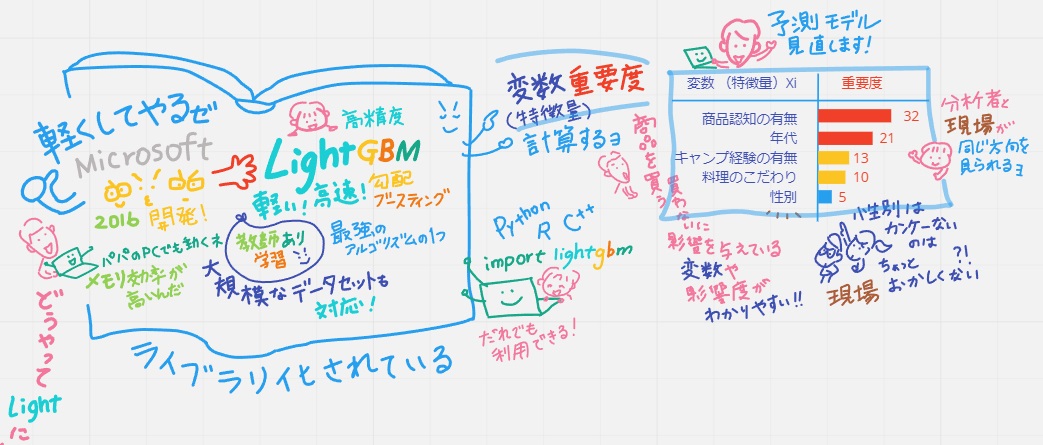 軽くしてやるぜ
Microsoft
2016 開発！
パパのPCでも動くネ
メモリ効率が
高いんだ
高精度
LightGBM
軽い！高速！
勾配
ブースティング
教師あり
学習
最強の
アルゴリズムの1つ
大規模なデータセットも
対応！
ライブラリ化されている
どうやって
Light
に
変数重要度
(特徴量)
計算するヨ
Python
R C++
import lightgbm
だれでも
利用できる！
商品を買う
買わないに
影響を与えている
変数や
影響度が
わかりやすい!!
予測モデル
見直します！
変数 （特徴量）Xi 重要度
商品認知の有無 32
年代 21
キャンプ経験の有無 13
料理のこだわり 10
性別 5
分析者と
現場が
同じ方向を
見られるヨ
性別は
カンケーない
のは
ちょっと
おかしくない?!
現場